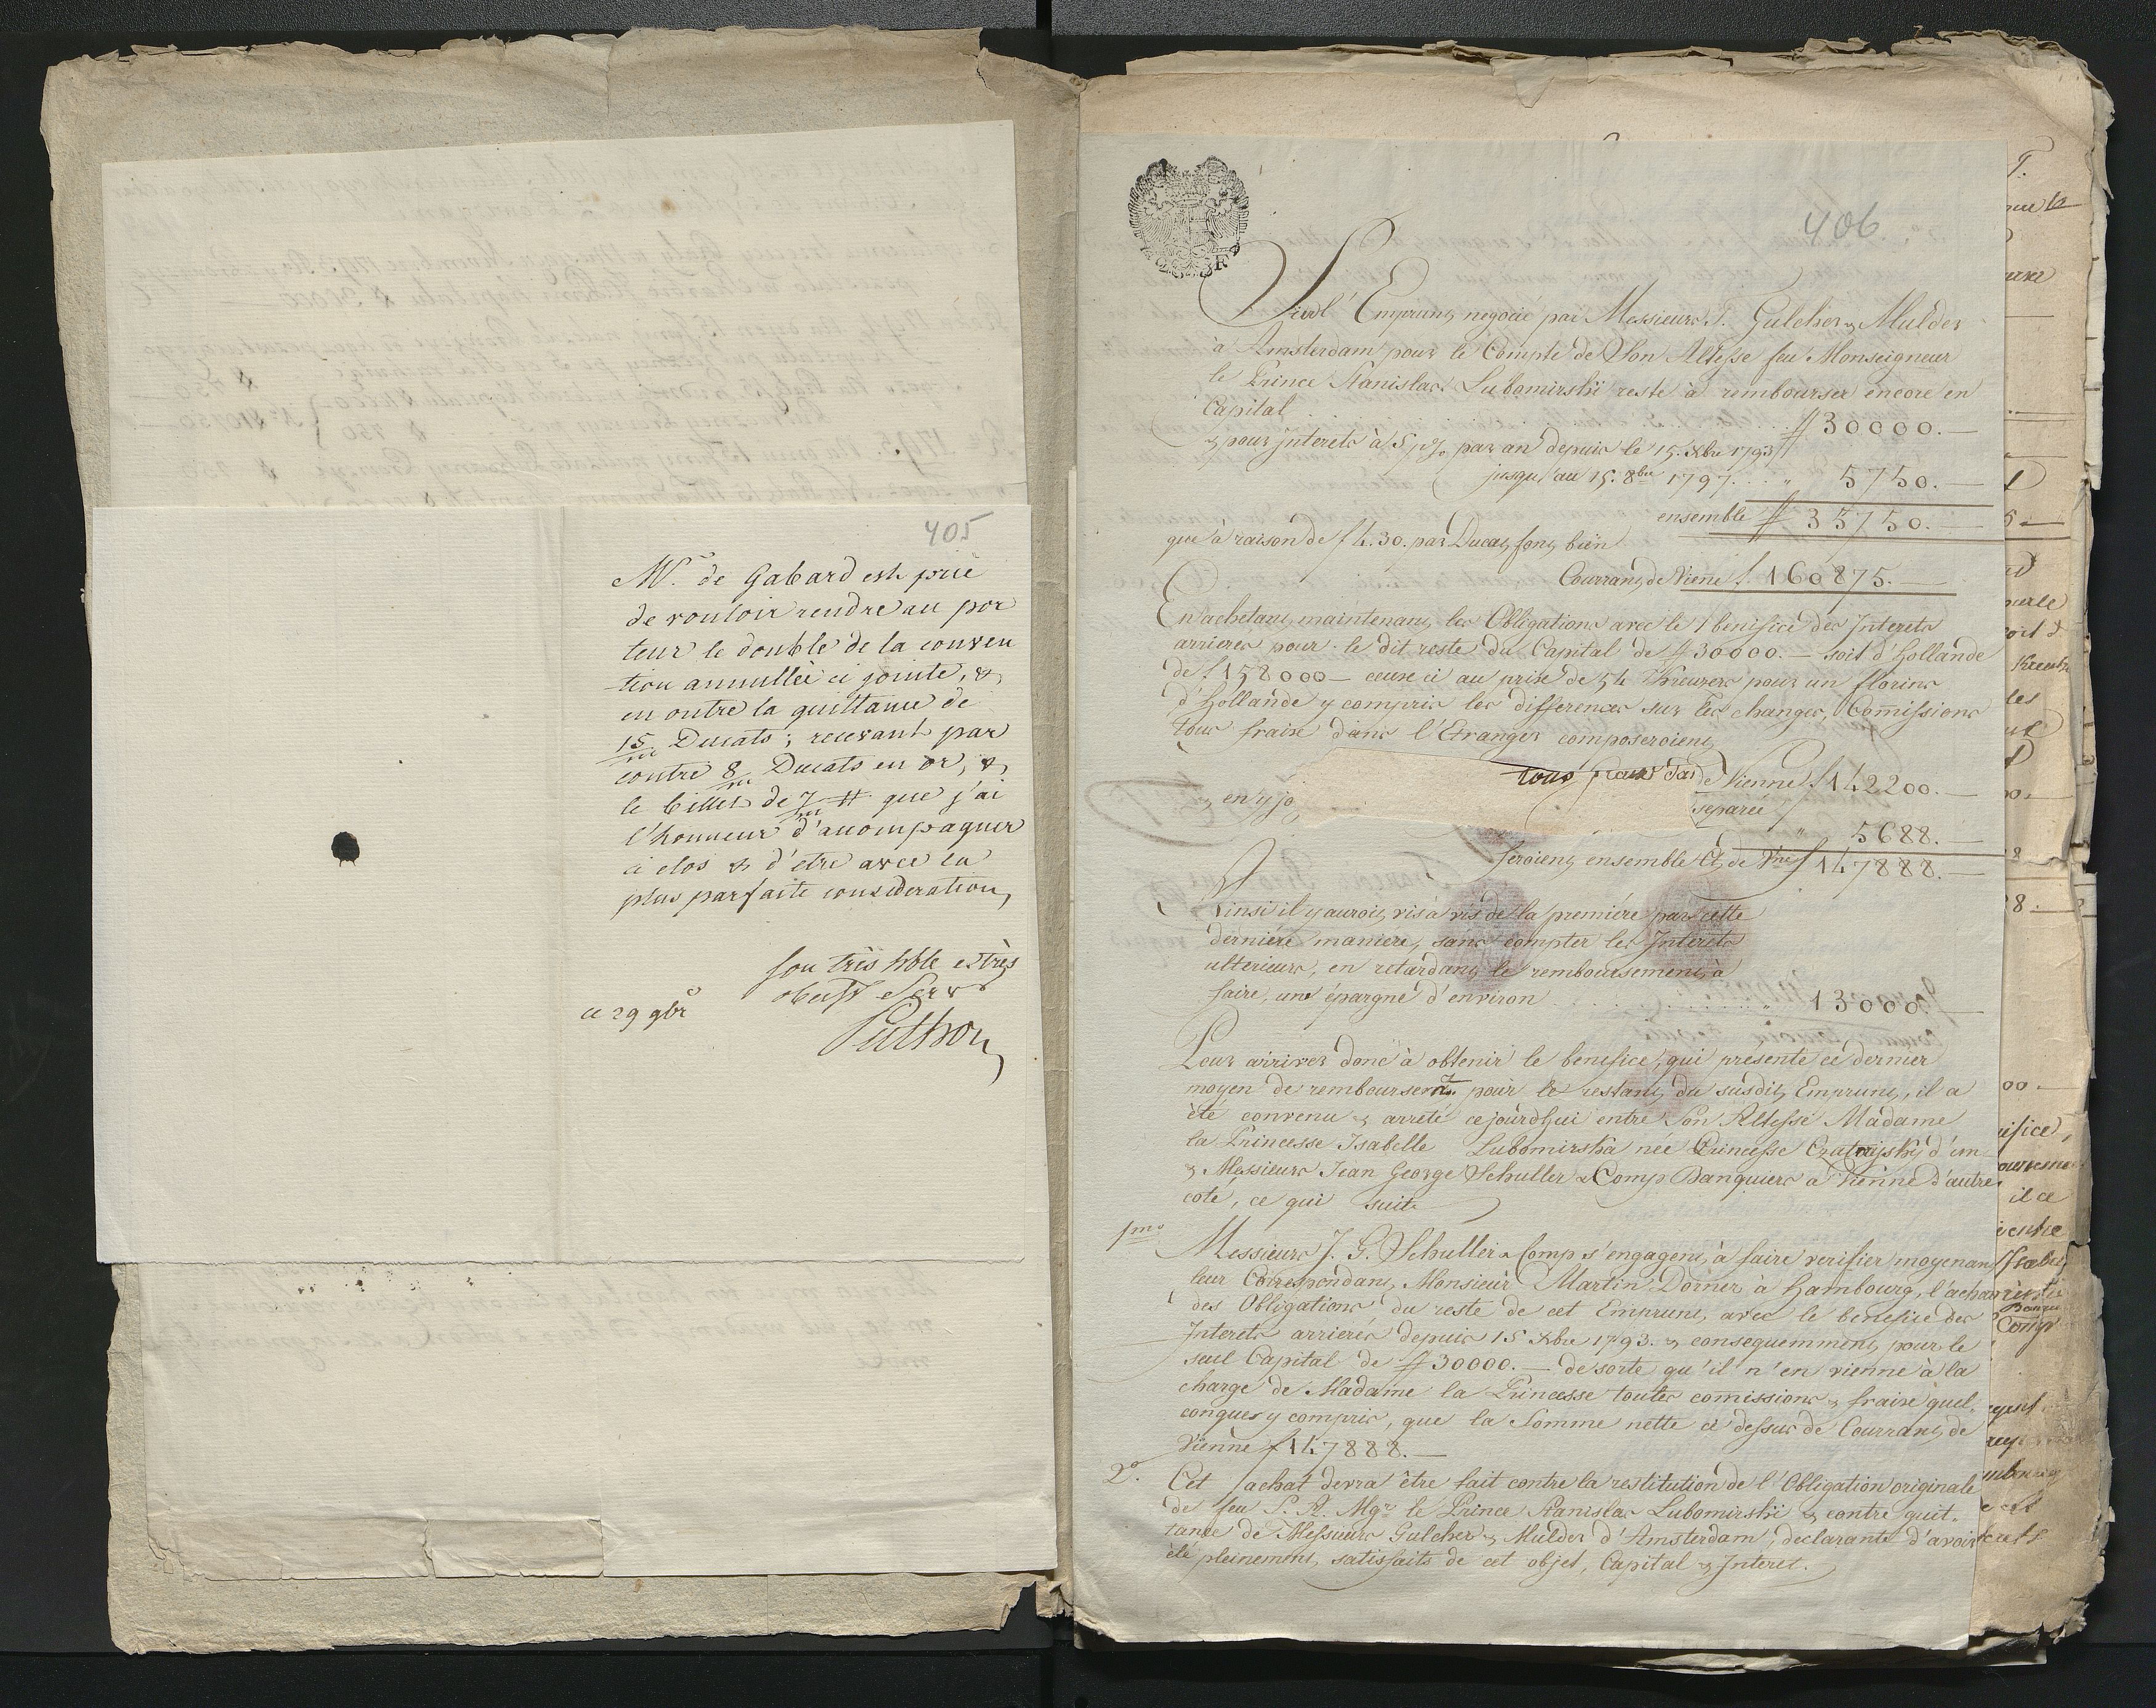 405
Mr. de Gabard est prié
de vouloir rendre au por
teur le double de la conven
tion annullée ci jointe, &
en outre la quittance de
15/m Ducats; recevant par
contre 8/m Ducats en or, &
le billet de 7/m # que j'ai
l'honneur d'accompagner
ci clos & d'etre avec la
plus parfaite consideration,
son très hble et très
obeisst Servr
ce 29 9br
Puthon
406
Sur l'Emprunt negocié par Messieurs T. Gulcher & Mulder
à Amsterdam pour le Compte de Son Altesse feu Monseigneur
le Prince Stanislas Lubomirski reste à rembourser encore en
Capital . . . . # 30000.—
& pour jnterets à 5 p% par an depuis le 15. Xbre 1793
jusqu'au 15. 8bre 1797. . . " 5750.—
ensemble # 35750.—
que à raison de f 4.30. par Ducat, font bien
Courrant de Viene f. 160875.—
En achetant maintenant les Obligations avec le benifice des Interets
arrieres pour le dit reste du Capital de # 30000.— soit d'Hollande
de f 158000— ceux ci au prix de 54 Kreuzers pour un florins
d'Hollande y compris les differences sur les changes, Comissions
tous fraix dans l'Etranger composeroient
tous fraix dans
de Vienne f 142200.—
& en y jo
separée
" 5688.—
feroient ensemble Ct de Vne f 147888.—
Ainsi il y auroit vis à vis de la premiére par cette
derniére maniere, sans compter les Interets
ulterieurs, en retardant le remboursement à
faire, une épargne d'environ . . . . " 13000.—
Pour arriver donc à obtenir le benefice, qui presente ce dernier
moyen de remboursemt. pour le restant du susdit Emprunt, il a
été convenu & arreté cejourdhui entre Son Altesse Madame
la Princesse Isabelle Lubomirska née Princesse Czatoryski d'un
& Messieurs Jean George Schuller & Comp Banquiers à Vienne d'autre
coté, ce qui suit
1mo Messieurs J. G. Schuller & Comp s'engagent à faire verifier moyenant
leur Correspondant, Monsieur Martin Dorner à Hambourg, l'achat
des Obligations du reste de cet Emprunt, avec le benefice des
Interets arrierés depuis 15 Xbre 1793. & consequemment pour le
seul Capital de # 30000.— de sorte qu'il n'en vienne à la
charge de Madame la Princesse toutes comissions & fraix quel-
conques y compris, que la Somme nette ci dessus de Courrant de
Vienne f 147888.—
2o. Cet achat devra être fait contre la restitution de l'Obligation originale
de feu S. A. Mgr le Prince Stanislas Lubomirski & contre quit-
tance de Messieurs Gulcher & Mulder d'Amsterdam, declarants d'avoir
été pleinement satisfaits de cet objet, Capital & Interet.